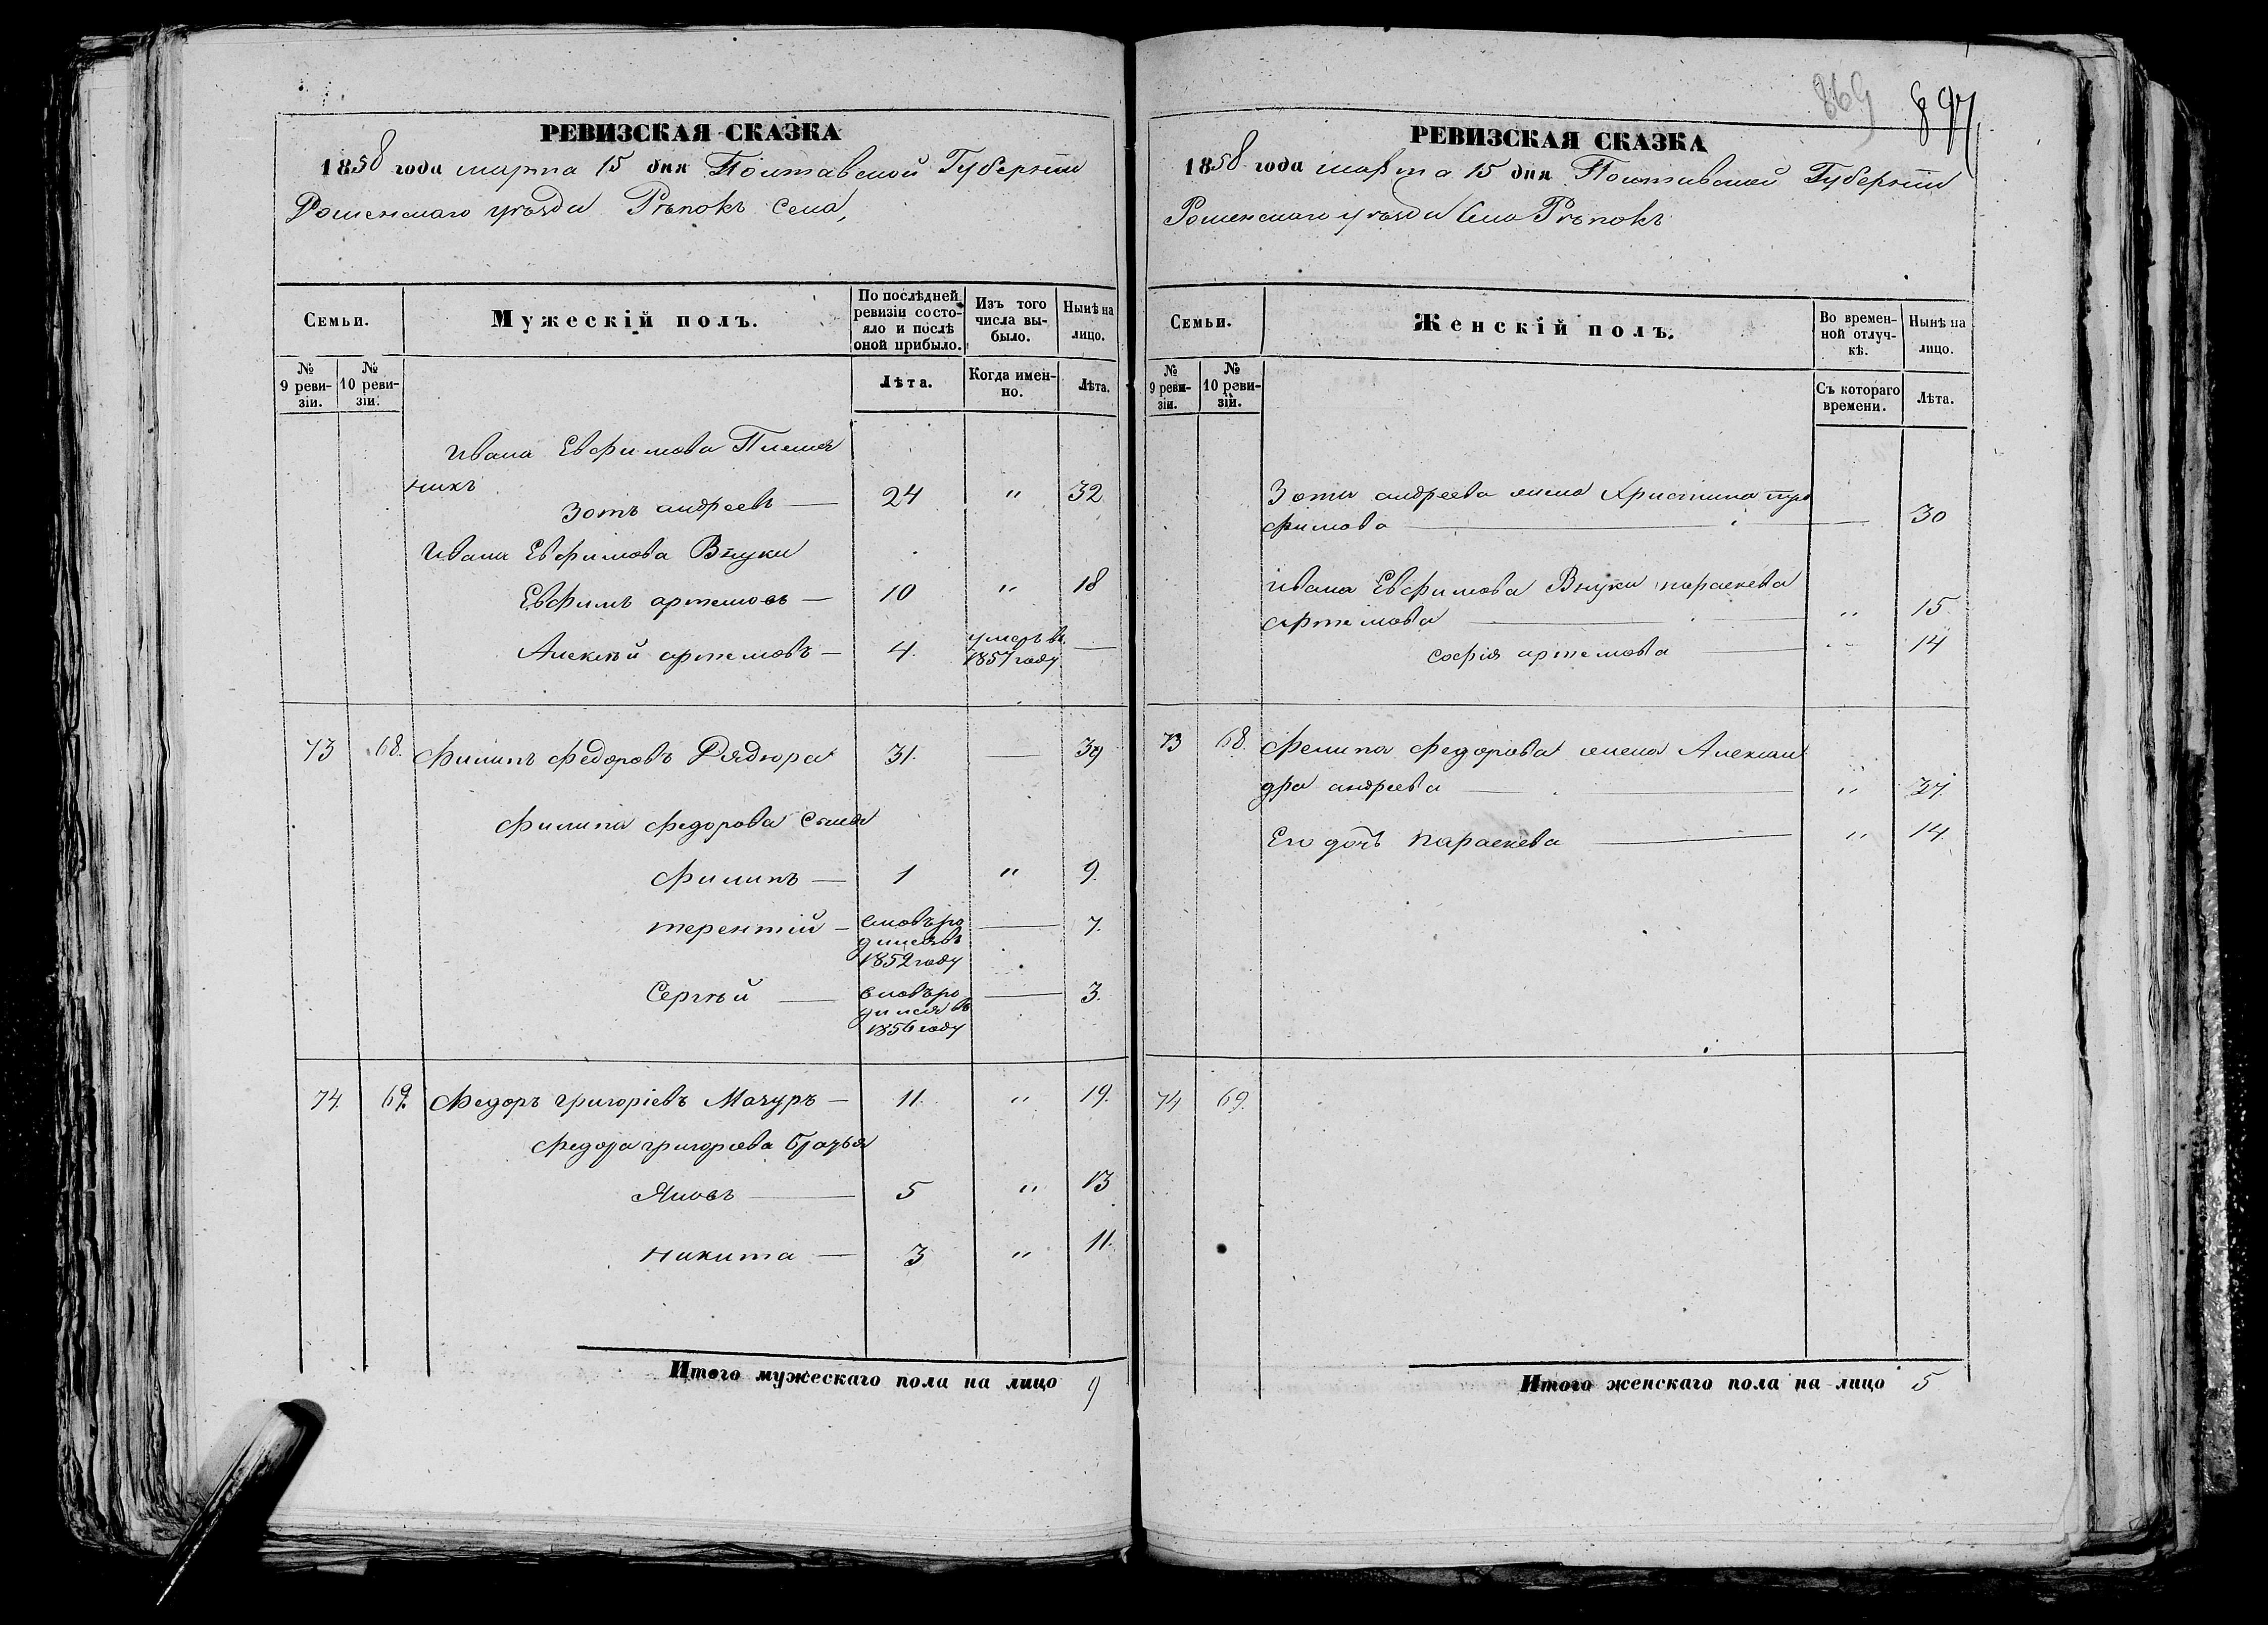 869
897
РЕВИЗСКАЯ СКАЗКА
1858 года марта 15 дня Полтавской Губерніи
Роменскаго уѣзда Рѣпокъ села,
Семьи.
Мужескій полъ.
По послѣдней
ревизіи состо-
яло и послѣ
оной прибыло.
Изъ того
числа вы-
было.
Нынѣ на
лицо.
№
9 реви-
зіи.
№
10 реви-
зіи.
Лѣта.
Когда имен-
но.
Лѣта.
Ивана Евфимова Племя
никъ
Зотъ андреевъ — 24 " 32
Ивана Евфимова Внуки
Евфимъ артемовъ — 10 " 18
Алексѣй артемовъ — 4. умеръ въ
1857 году —
73 68. Филипъ Федоровъ Рядюра 31. — 39
Филипа Федорова сыновя
Филипъ — 1 " 9.
терентій — вновь ро
дился въ
1852 году — 7.
Сергѣй — вновь ро
дился въ
1856 году — 3.
74. 69. Федоръ григоріевъ Мачуръ — 11. " 19.
Федора григорева братья
Яковъ — 5 " 13
никита — 3 " 11.
Итого мужескаго пола на лицо 9
РЕВИЗСКАЯ СКАЗКА
1858 года марта 15 дня Полтавской Губерніи
Роменскаго уѣзда Села Рѣпокъ
Семьи.
Женскій полъ.
Во времен-
ной отлуч-
кѣ.
Нынѣ на
лицо.
№
9 реви-
зіи.
№
10 реви-
зій.
Съ котораго
времени.
Лѣта.
Зота андреева жена Христина тро
фимова — 30
Ивана Евфимова Внуки параскева
артемова — " 15
софія артемова — " 14
73 68. Филипа Федорова жена Алексан
дра андреева — " 37.
Его дочь параскева — " 14.
74 69.
Итого женскаго пола на лицо 5